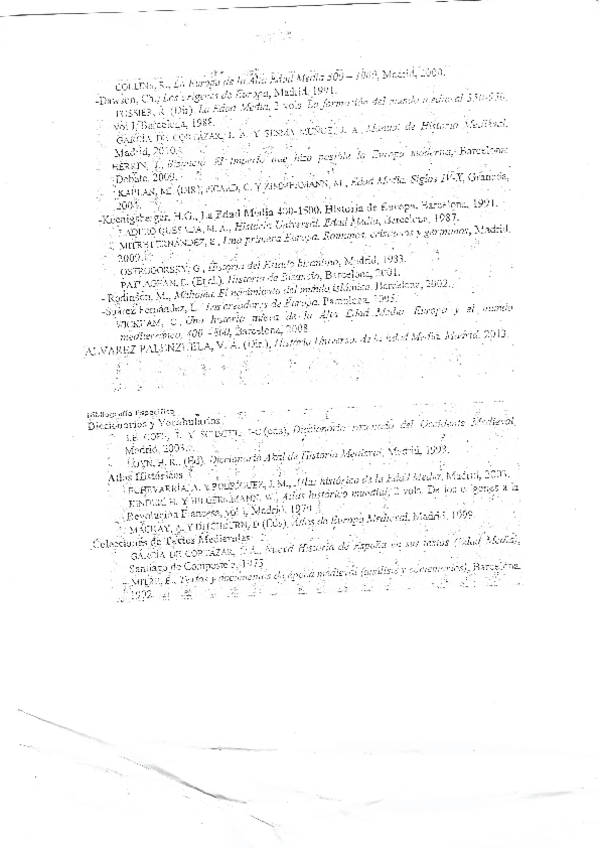 COLLINS, R., La Europa de la Alta Edad Media 300 – 1000, Madrid, 2000.
-Dawson, Ch., Los orígenes de Europa, Madrid, 1991.
FOSSIER, R. (Dir). La Edad Media, 2 vols. La formación del mundo medieval 350-950,
vol I, Barcelona, 1988.
GARCÍA DE CORTÁZAR, J. A. Y SESMA MUÑOZ, J. A., Manual de Historia Medieval,
Madrid, 2010.
HERRIN, J., Bizancio. El imperio que hizo posible la Europa moderna, Barcelona:
Debate, 2009.
KAPLAN, M. (DIR), PICARD, C. Y ZIMMERMANN, M., Edad Media. Siglos IV-X, Granada,
-Koenigsberger, H.G., La Edad Media 400-1500. Historia de Europa. Barcelona, 1991.
LADERO QUESADA, M. A., Historia Universal. Edad Media, Barcelona, 1987.
MITRE FERNÁNDEZ, E., Una primera Europa. Romanos, cristianos y germanos, Madrid,
2009.
OSTROGORSKY, G., Historia del Estado bizantino, Madrid, 1983.
(Ed.). Historia de Bizancio, Barcelona, 2001.
- Rodinson, M., Mahoma. El nacimiento del mundo islámico. Barcelona, 2002.
-Suárez Fernández, L. Los creadores de Europa. Pamplona, 2005.
WICKHAM, C., Una historia nueva de la Alta Edad Media. Europa y el mundo
mediterráneo, 400 - 800, Barcelona, 2008.
ALVAREZ PALENZUELA, V. A. (Dir.), Historia Universal de la Edad Media, Madrid, 2013.
Bibliografía Específica
Diccionarios y Vocabularios
LE GOFF, J. Y SCHMITT, J-C (eds), Diccionario razonado del Occidente Medieval,
Madrid, 2003.
LOYN, H. R., (Ed). Diccionario Akal de Historia Medieval, Madrid, 1998.
Atlas Históricos
ECHEVARRÍA, A. Y RODRÍGUEZ, J. M., Atlas histórico de la Edad Media, Madrid, 2003.
KINDER, H. Y HILGERMANN, W., Atlas histórico mundial, 2 vols. De los orígenes a la
Revolución Francesa, vol I, Madrid, 1970.
MACKAY, A. Y DITCHBURN, D (Eds), Atlas de Europa Medieval, Madrid, 1999.
Colecciones de Textos Medievales
GARCÍA DE CORTÁZAR, J. A., Nueva Historia de España en sus textos (Edad Media),
Santiago de Compostela, 1975.
MITRE, E., Textos y documentos de época medieval (análisis y comentarios), Barcelona,
1992.